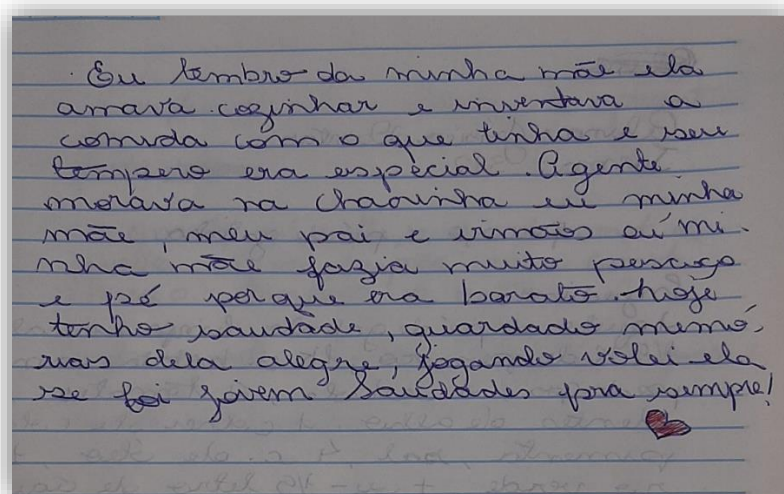 Eu lembro da minha mãe ela
amava cozinhar e inventava a
comida com o que tinha e seu
tempero era especial. Agente
morava na chacrinha eu minha
mãe, meu pai e irmãos aí mi-
nha mãe fazia muito pescoço
e pé porque era barato. hoje
tenho saudade, guardado memó-
rias dela alegre, jogando volei ela
se foi jovem Saudades pra sempre!